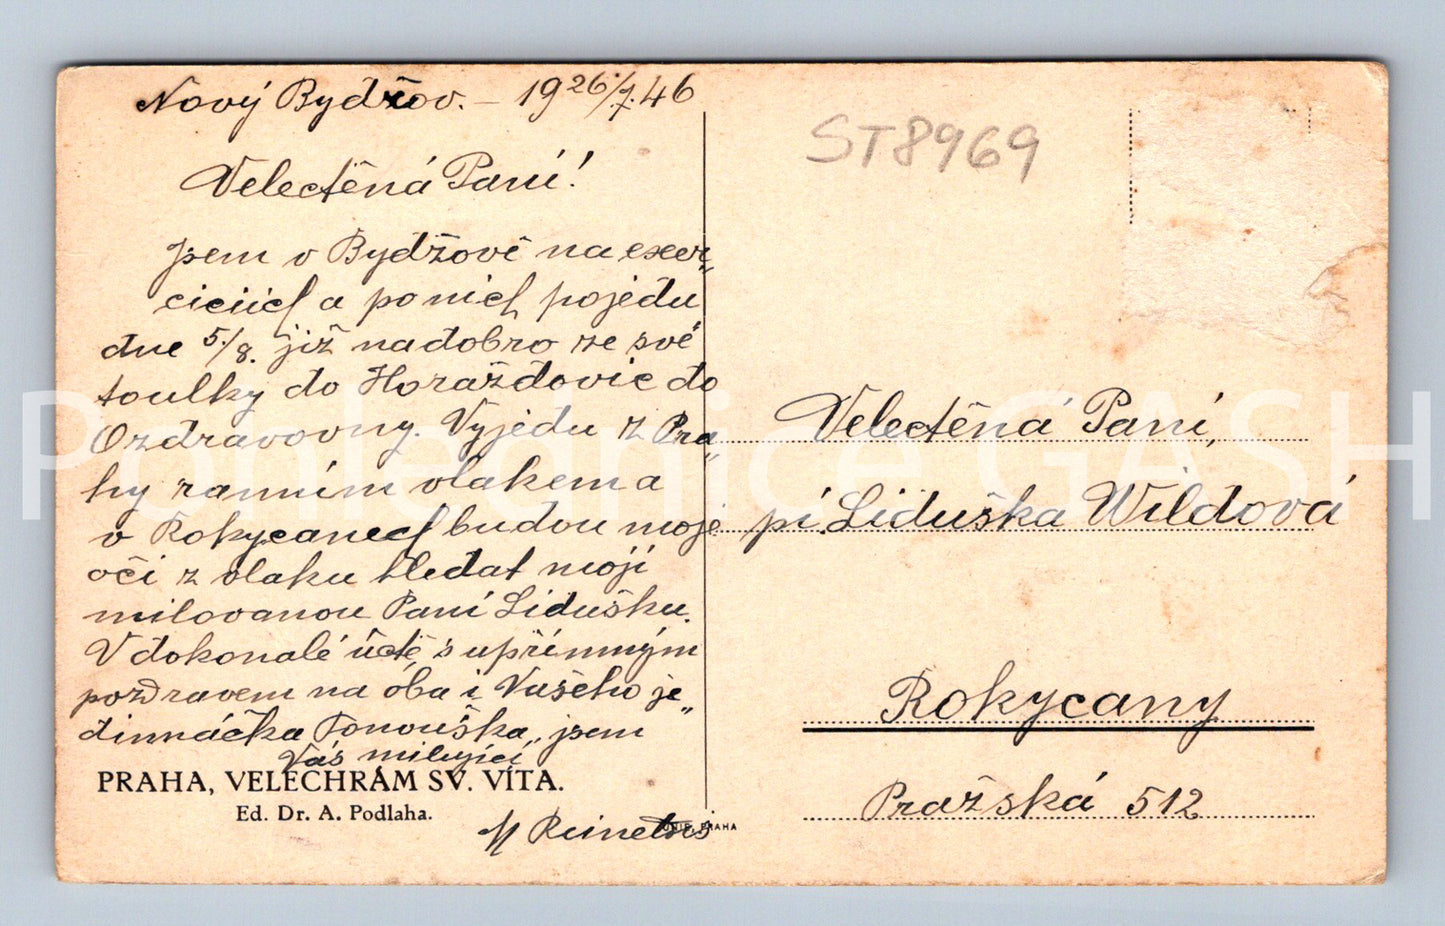 Nový Bydžov. – 19 26/7. 46
Velectěná Paní!
Jsem v Bydžově na exer„
ciciích a po nich pojedu
dne 5./8. již nadobro ze své
toulky do Horažďovic do
Ozdravovny. Vyjedu z Pra„
hy ranním vlakem a
v Rokycanech budou moje
oči z vlaku hledat moji
milovanou Paní Lidušku.
V dokonalé úctě s upřímným
pozdravem na oba i Vašeho je„
dináčka Tonouška, jsem
Váš milující
PRAHA, VELECHRÁM SV. VÍTA.
Ed. Dr. A. Podlaha.
UNIE, PRAHA
ST8969
Velectěná Paní,
pí. Liduška Wildová
Rokycany
Pražská 512
Pohlednice GASH